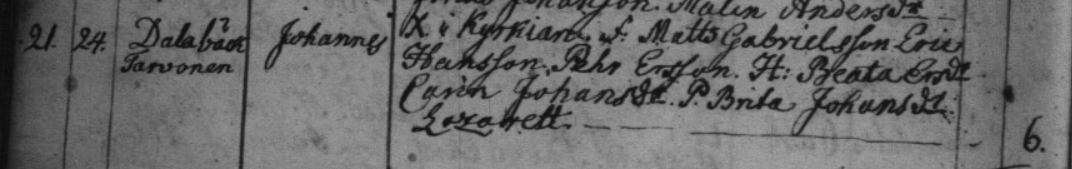 Johanson. Malin Andersdtr
21. 24. Dalabäck Johannes X i Kyrkian. f: Matts Gabrielsson Eric
Tarvonen Hansson. Pehr Ersson. H: Beata Ersdtr
Carin Johansdtr. P. Brita Johansdtr.
Lazarett. 6.